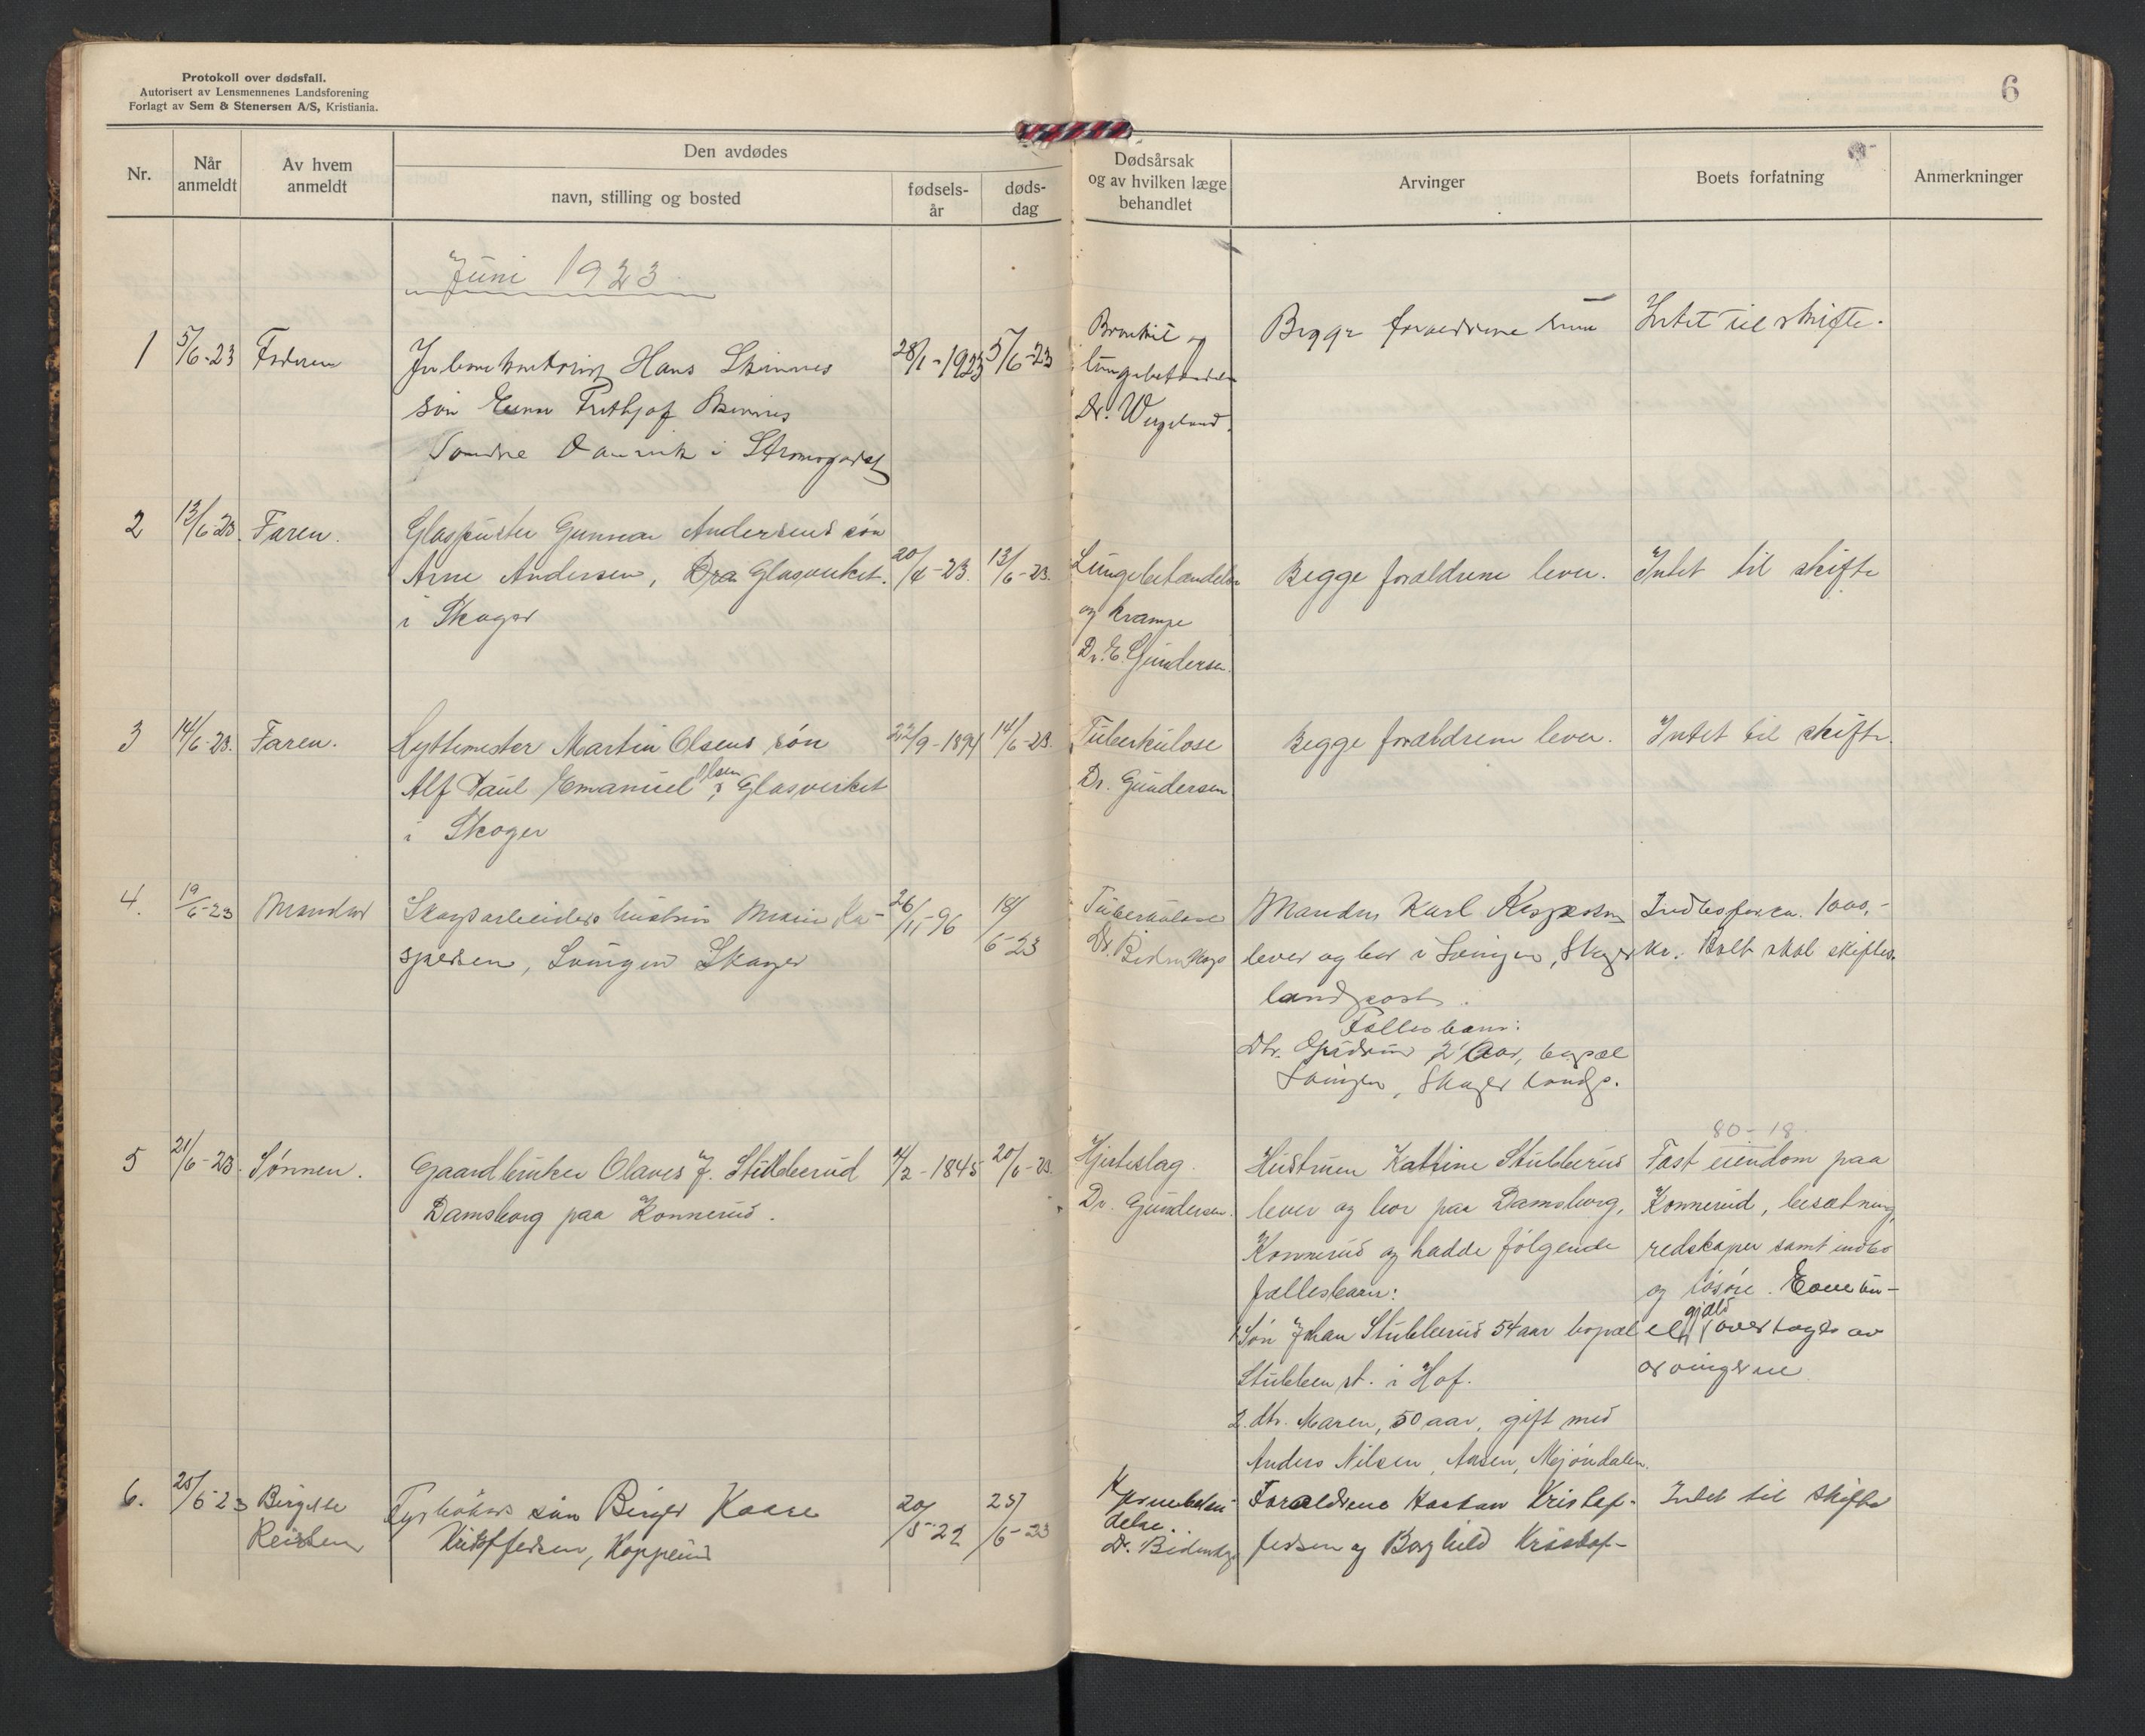 Protokoll over dødsfall.
Autorisert av Lensmennenes Landsforening
Forlagt av Sem & Stenersen A/S, Kristiania.
6
Nr.
Når anmeldt
Av hvem anmeldt
Den avdødes
navn, stilling og bosted
fødsels-år
døds-dag
Dødsårsak
og av hvilken læge
behandlet
Arvinger
Boets forfatning
Anmerkninger
Juni 1923
1 5/6-23 Faderen
Hans Skinnes
søn Frithjof Skinnes
Danvik i Strømsgodset
28/1-1923 5/6-23
Bronkit og
lungebetændelse
Dr. Wergeland.
Begge forældrene
Intet til skifte.
2 13/6-23. Faren.
Glaspuster Gunnar Andersens søn
Arne Andersen, Dra. Glasverket.
i Skoger
20/4-23. 13/6-23.
Lungebetændelse
og krampe
Dr. E. Gundersen.
Begge forældrene lever.
Intet til skifte
3 14/6-23. Faren.
Hyttemester Martin Olsens søn
Alf Paul Emanuel Olsen, Glasverket
i Skoger
22/9-1894 14/6-23.
Tuberkulose
Dr. Gundersen
Begge forældrene lever.
Intet til skifte.
4. 19/6-23 Manden
Skogsarbeiders hustru Marie Ka-
spersen, Svingen Skoger
26/11-96 18/6-23
Tuberkulose
Dr. Bidenkap
Manden Karl Kaspersen
lever og bor i Svingen, Skoger
landpost.
Fællesbarn:
Dtr. Gudrun 2 Aar, bopæl
Svingen, Skoger landp.
Indbo for ca. 1000,-
kr. Boet skal skiftes.
5 21/6-23. Sønnen.
Gaardbruker Olaves J. Stubberud
Damsborg paa Konnerud.
4/2-1845 20/6-23.
Hjerteslag.
Dr. Gundersen.
Hustruen Katrine Stubberud
lever og bor paa Damsborg,
Konnerud og hadde følgende
fællesbarn:
1 Søn Johan Stubberud 54 aar bopæl
Stubben st. i Hof.
2. dtr. Maren, 50 aar, gift med
Anders Nilsen, Aasen, Mjøndalen.
80-18.
Fast eiendom paa
Konnerud, besætning,
redskaper samt indbo
og løsøre. Eventu-
ell gjæld overtages av
arvingerne
6. 25/6-23 Birgitte
Reisten
søn Birger Kaare
Kristoffersen, Kopperud
20/5-22 25/6-23
Hjernebetæn-
delse.
Dr. Bidenkap
Forældrene Kristof-
fersen og Borghild Kristof-
Intet til skifte